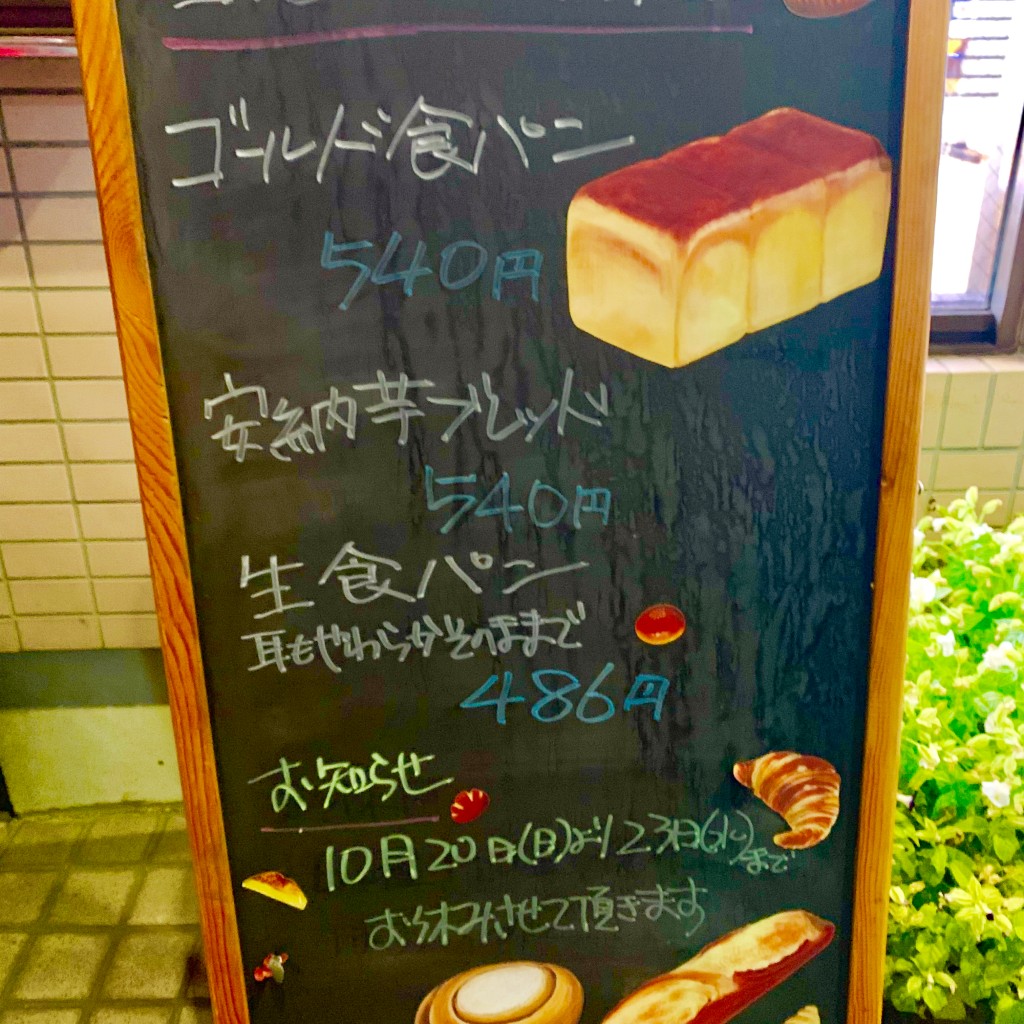 ゴールド食パン
540円
安納芋ブレッド
540円
生食パン
耳もやわらかそのままで
486円
お知らせ
10月20日(日)より23日(水)まで
お休みさせて頂きます